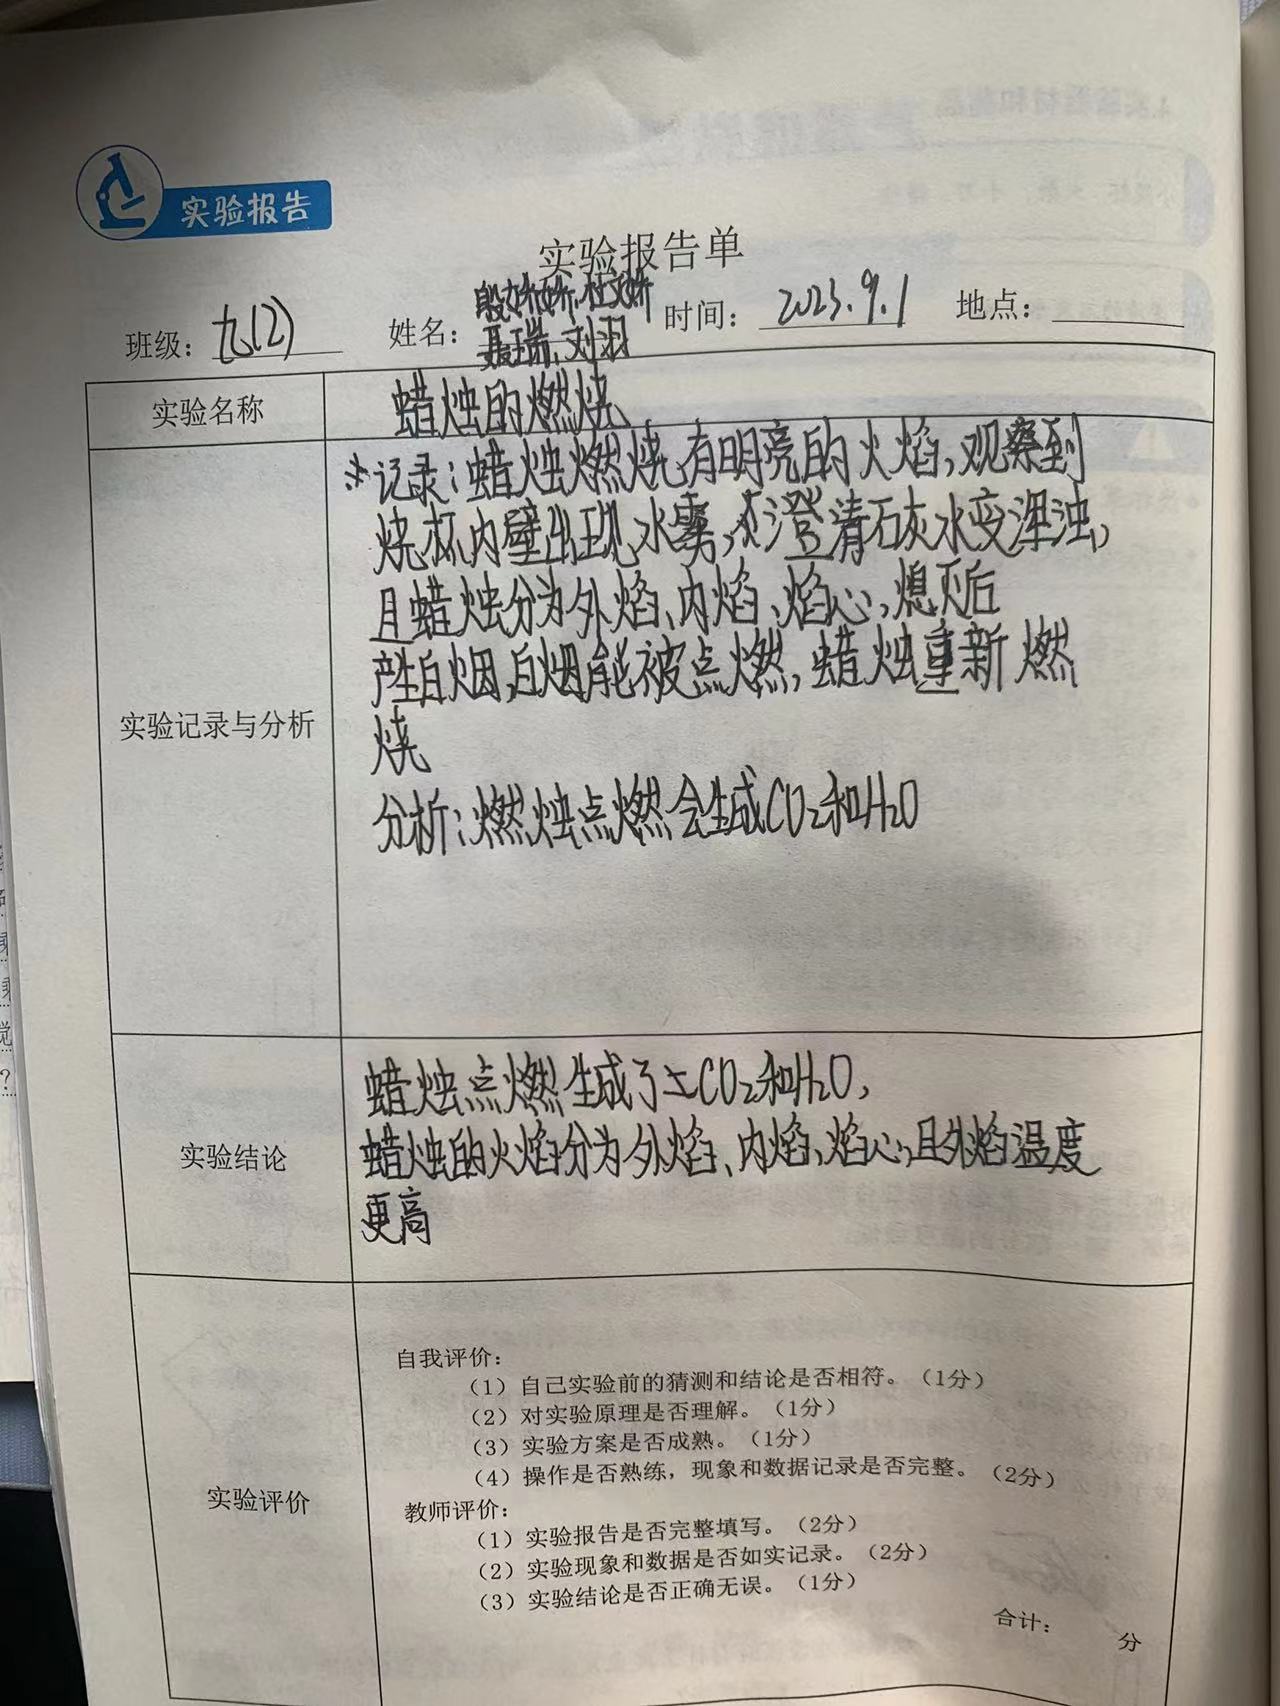 实验报告
实验报告单
班级：九(2) 姓名：殷娇娇、杜文娇 时间：2023.9.1 地点：
聂瑞、刘羽
实验名称 蜡烛的燃烧
实验记录与分析
*记录：蜡烛燃烧有明亮的火焰，观察到
烧杯内壁出现水雾，澄清石灰水变浑浊，
且蜡烛分为外焰、内焰、焰心，熄灭后
产生白烟，白烟能被点燃，蜡烛重新燃
烧
分析：燃烛点燃会生成CO₂和H₂O
实验结论
蜡烛点燃生成了CO₂和H₂O，
蜡烛的火焰分为外焰、内焰、焰心，且外焰温度
更高
实验评价
自我评价：
（1）自己实验前的猜测和结论是否相符。（1分）
（2）对实验原理是否理解。（1分）
（3）实验方案是否成熟。（1分）
（4）操作是否熟练，现象和数据记录是否完整。（2分）
教师评价：
（1）实验报告是否完整填写。（2分）
（2）实验现象和数据是否如实记录。（2分）
（3）实验结论是否正确无误。（1分）
合计： 分